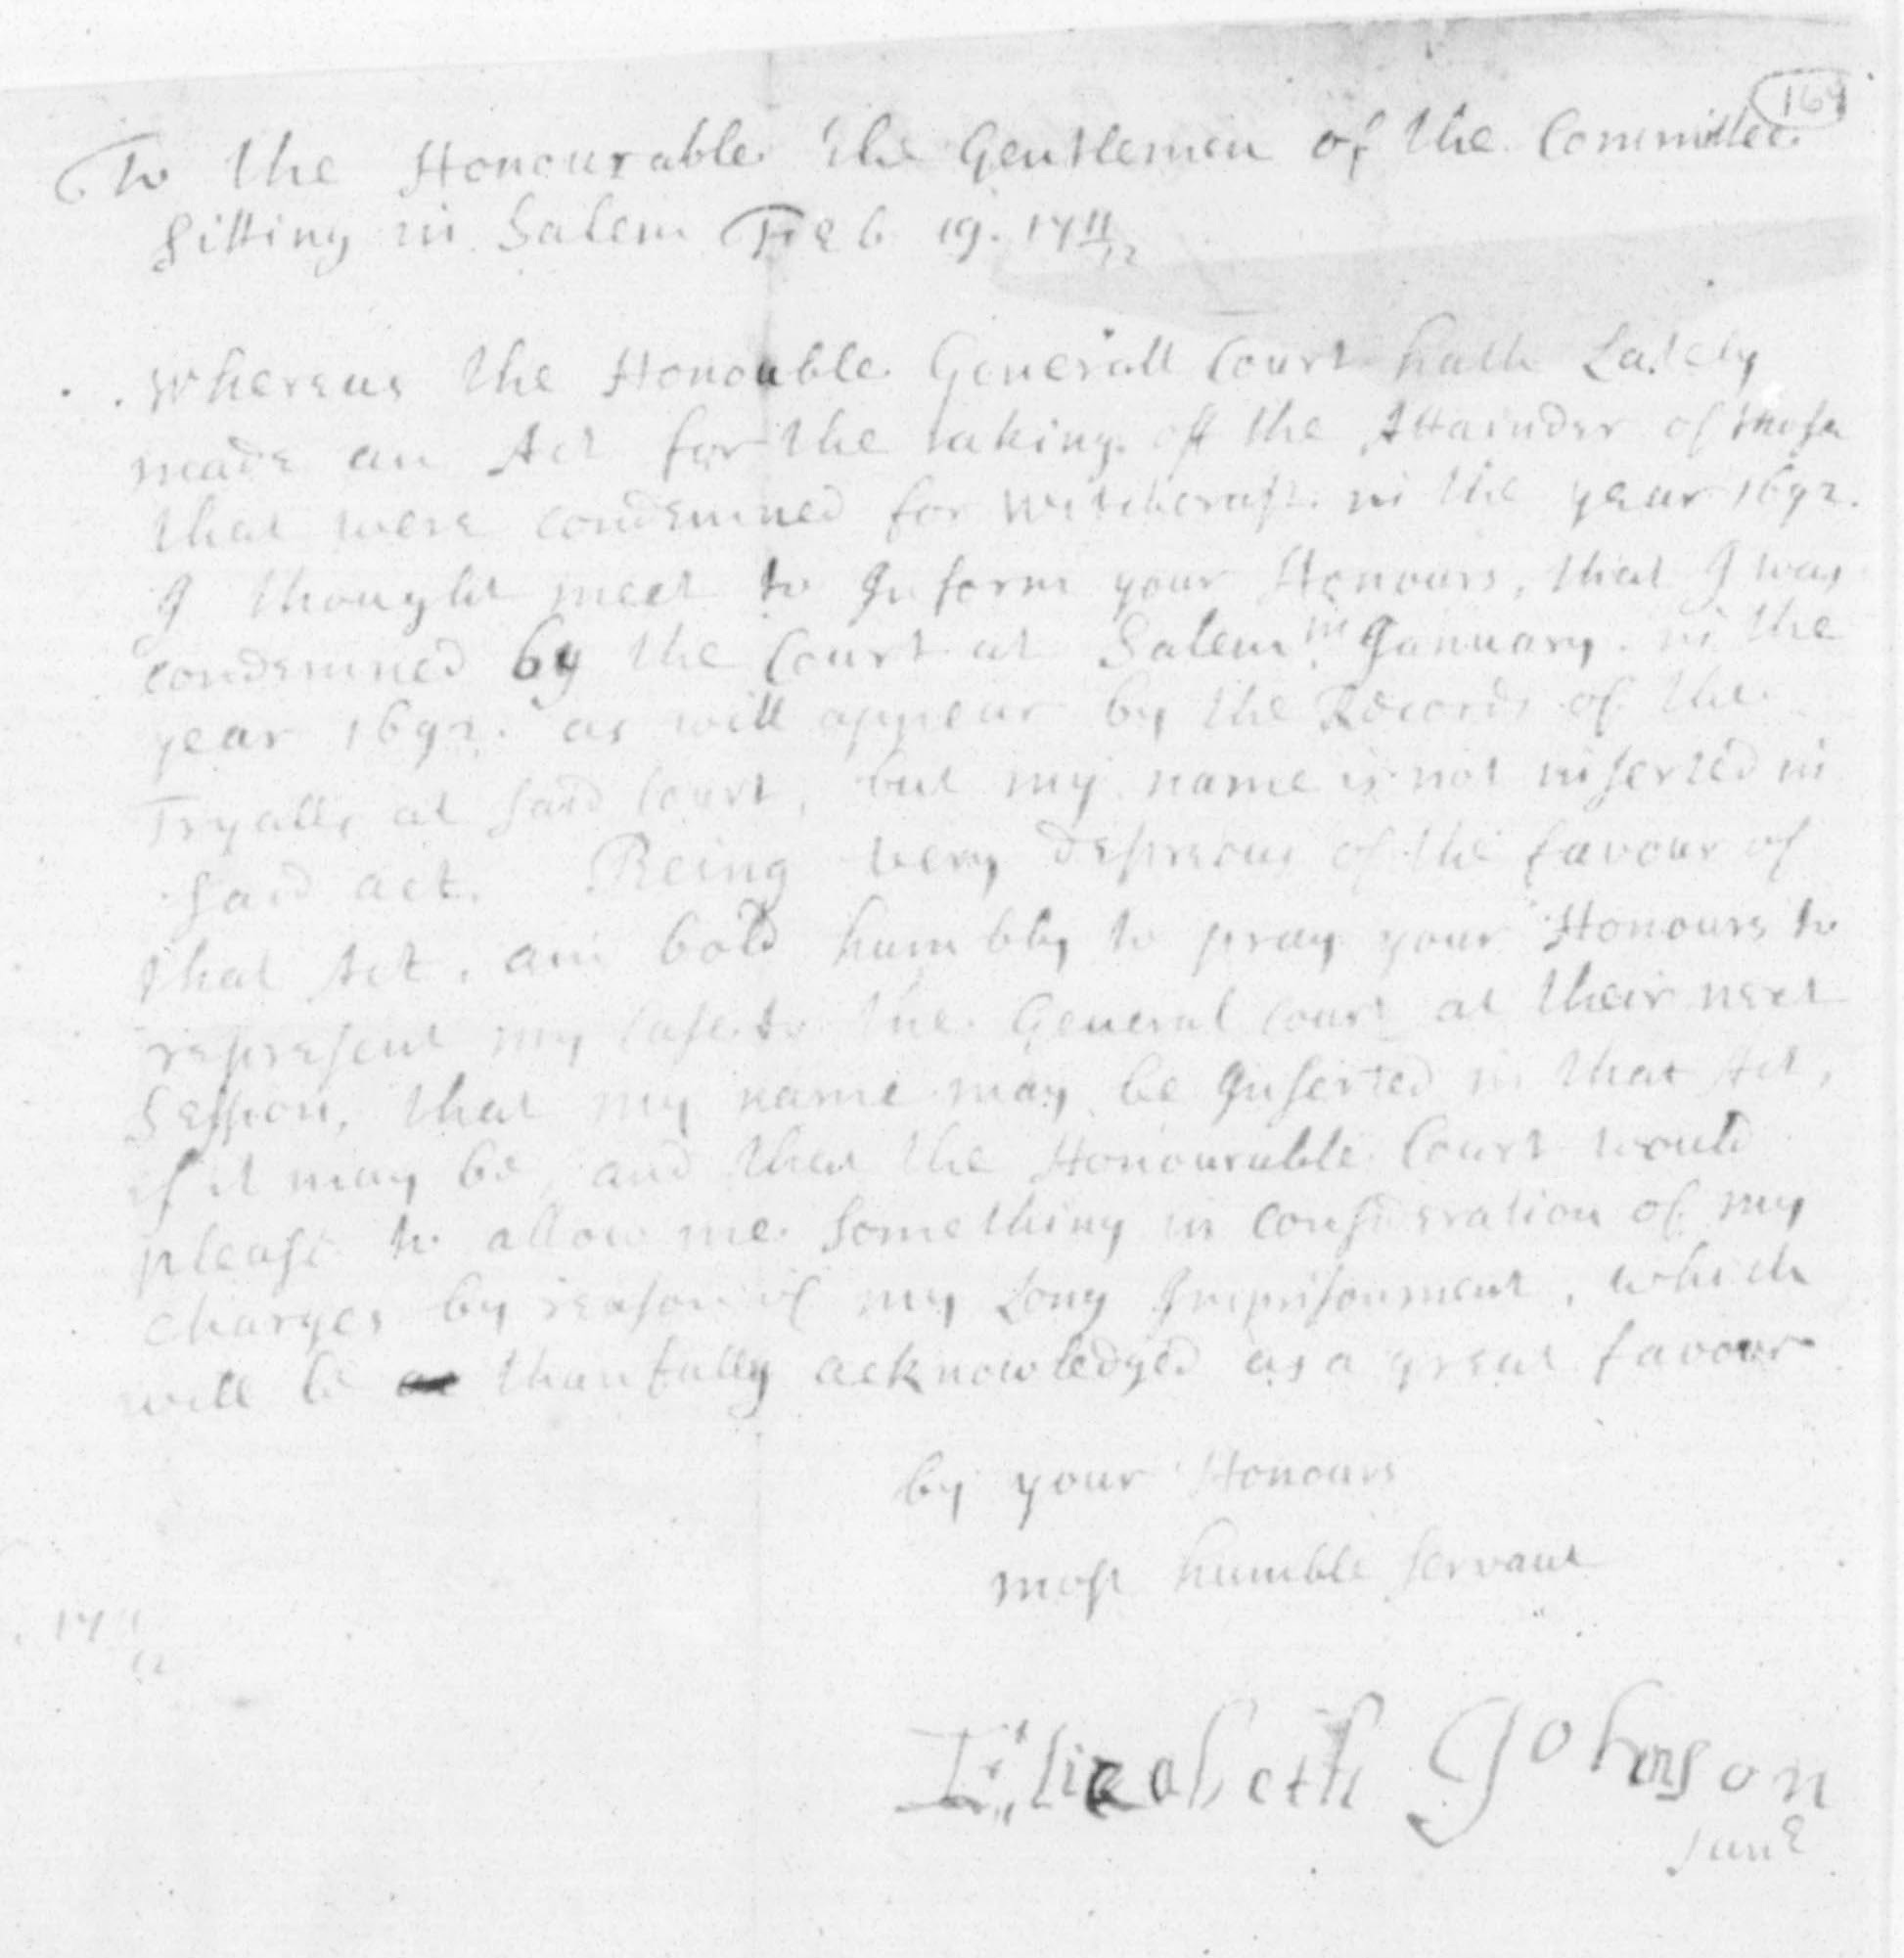 164
To the Honourable the Gentlemen of the Committee
sitting in Salem Feb 19. 17 11/12
Whereas the Honouble Generall Court hath Lately
made an Act for the taking off the Attainder of those
that were condemned for Witchcraft in the year 1692.
I thought meet to Inform your Honours, that I was
condemned by the Court at Salem in January in the
year 1692. as will appear by the Records of the
Tryalls at said Court, but my name is not inserted in
said act. Being very desireous of the favour of
that Act, am bold humbly to pray your Honours to
represent my Case to the General Court at their next
Session, that my name may be Inserted in that Act,
if it may be, and that the Honourable Court would
please to allow me something in consideration of my
charges by reason of my Long Imprisonment, which
will be thankfully acknowledged as a great favour
by your Honours
most humble servant
17 11/12
Elizabeth Johnson
Junr